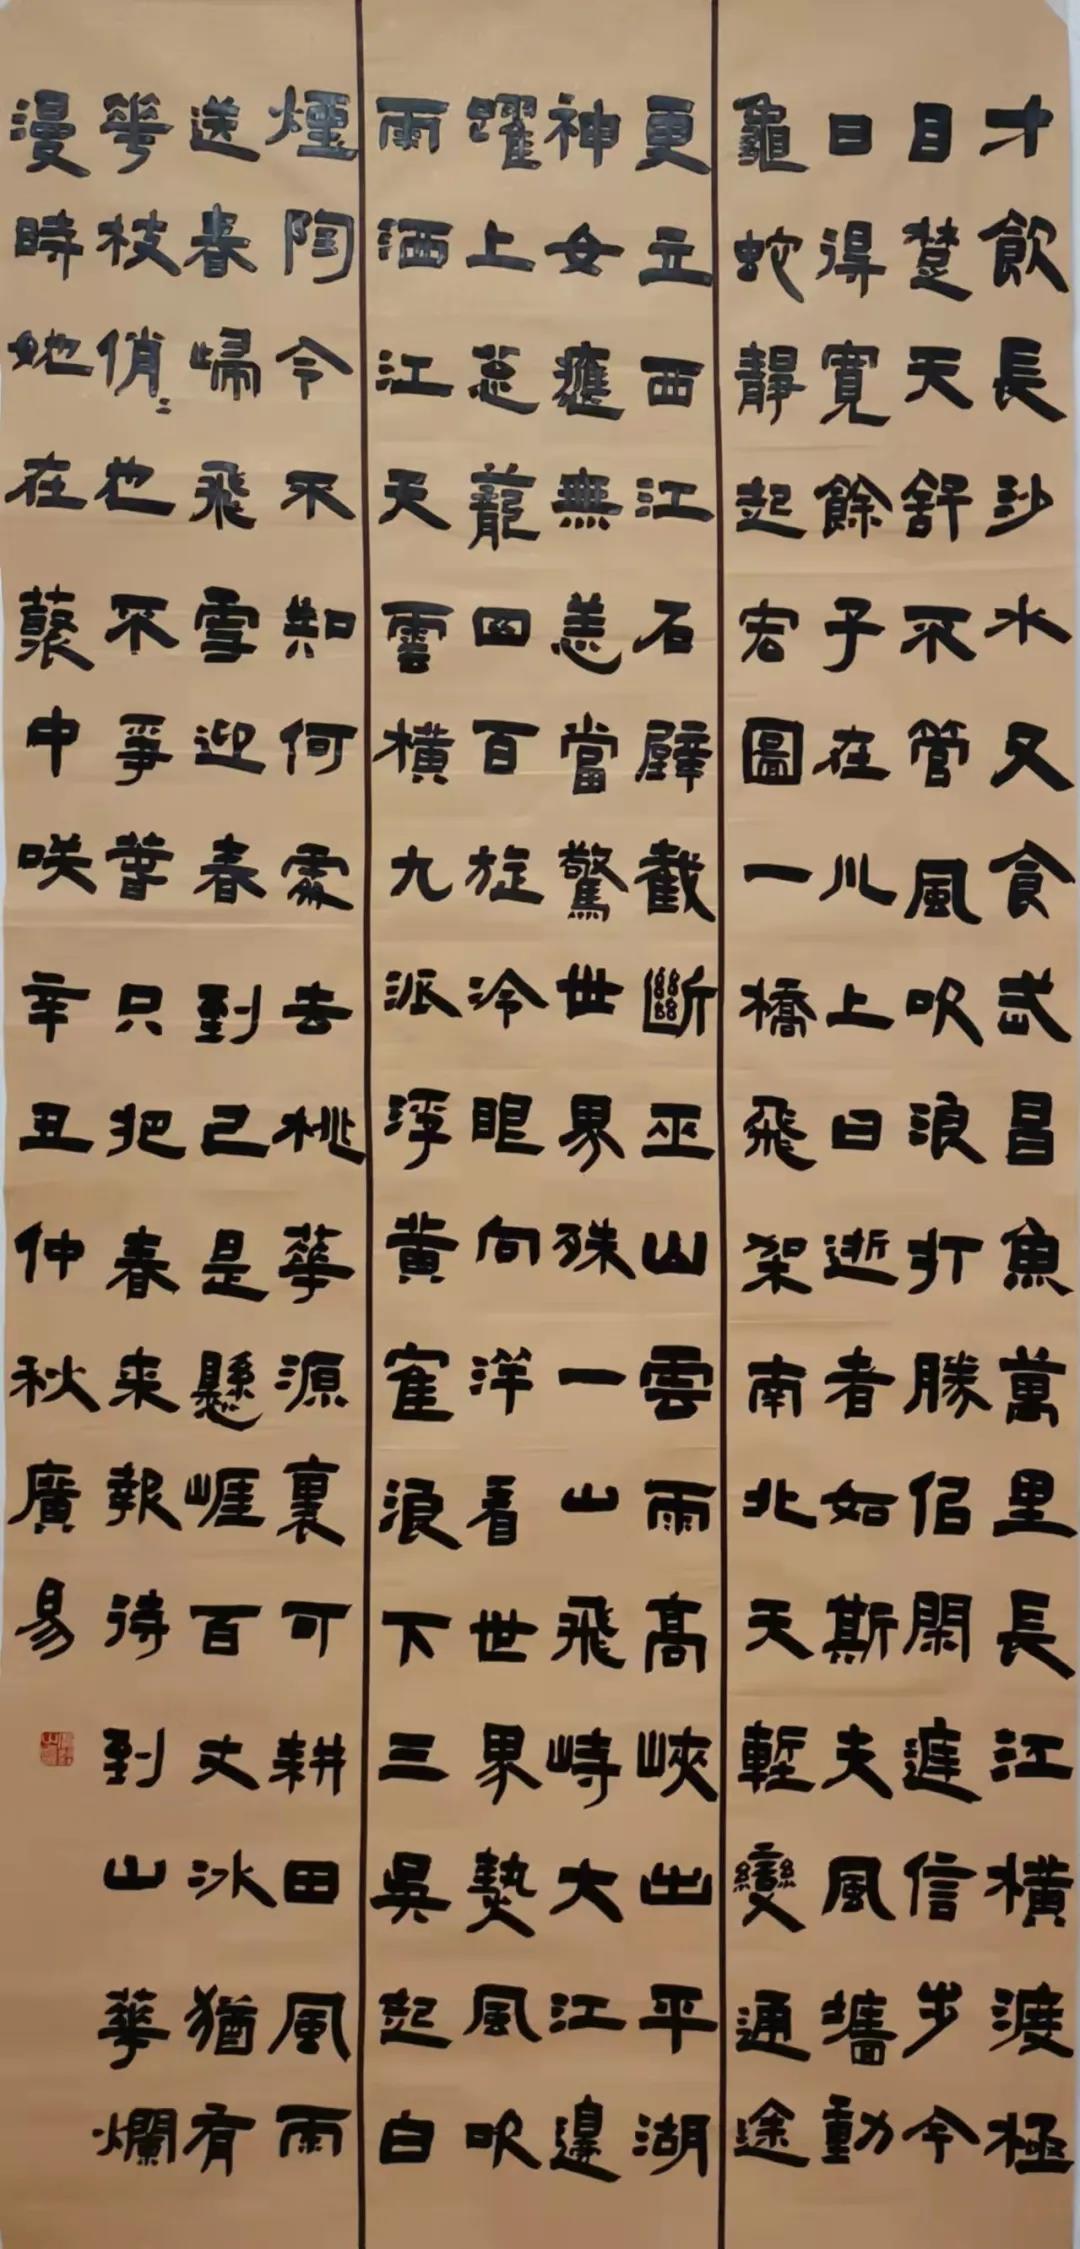 才飲長沙水又食武昌魚萬里長江橫渡極
目楚天舒不管風吹浪打勝佀閑庭信步今
日得寬餘子在川上曰逝者如斯夫風檣動
龜蛇靜起宏圖一橋飛架南北天塹變通途
更立西江石壁截斷巫山雲雨高峽出平湖
神女應無恙當驚世界殊一山飛峙大江邊
躍上蔥蘢四百旋冷眼向洋看世界熱風吹
雨洒江天雲橫九派浮黃寉浪下三吳起白
煙陶令不知何處去桃華源裏可耕田風雨
送春歸飛雪迎春到已是懸崖百丈冰猶有
華枝俏〻也不爭萅只把春來報待到山華爛
漫時她在叢中咲辛丑仲秋廣易